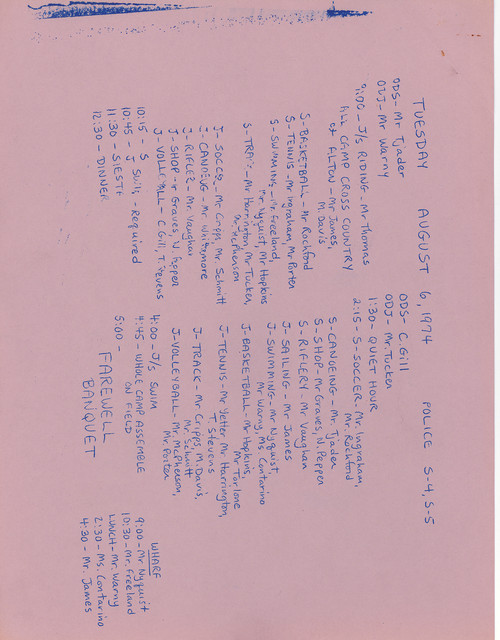 TUESDAY AUGUST 6, 1974 POLICE S-4, S-5
ODS- Mr Tjader
ODJ- Mr Warny
9:00 - J/S RIDING - Mr Thomas
ALL CAMP CROSS COUNTRY
at ALTON - Mr James,
M. Davis
S-BASKETBALL - Mr Rochford
S-TENNIS - Mr Ingraham, Mr Porten
S-SWIMMING - Mr Freeland,
Mr Nyquist, Mr Hopkins
S-TRACK - Mr Harrington, Mr Tucken,
Mr McPherson
J-SOCCER - Mr Cripps, Mr Schmitt
J-CANOEING - Mr Whittmore
J-RIFLERY - Mr Vaughan
J-SHOP - Mr Graves, N. Pepper
J-VOLLEYBALL - C Gill, T. Stevens
10:15 - S
10:45 - J Swim - Required
11:30 - SIESTA
12:30 - DINNER
ODS- C. Gill
ODJ- Mr. Tucken
1:30 - QUIET HOUR
2:15 - S-SOCCER - Mr. Ingraham,
Mr. Rochford
S-CANOEING - Mr. Tjader
S-SHOP - Mr Graves, N. Pepper
S-RIFLERY - Mr Vaughan
J-SAILING - Mr James
J-SWIMMING - Mr Nyquist,
Mr Warny, Ms Contarino
J-BASKETBALL - Mr Hopkins,
Mr Torlone
J-TENNIS - Mr Yetter, Mr Harrington,
T. Stevens
J-TRACK - Mr Cripps, M. Davis,
Mr Schmitt
J-VOLLEYBALL - Mr. McPherson,
Mr Porten
4:00 - J/S SWIM
4:45 - WHOLE CAMP ASSEMBLE
ON FIELD
5:00 -
FAREWELL
BANQUET
WHARF
9:00 - Mr Nyquist
10:30 - Mr. Freeland
LUNCH - Mr. Warny
2:30 - Ms. Contarino
4:30 - Mr. James